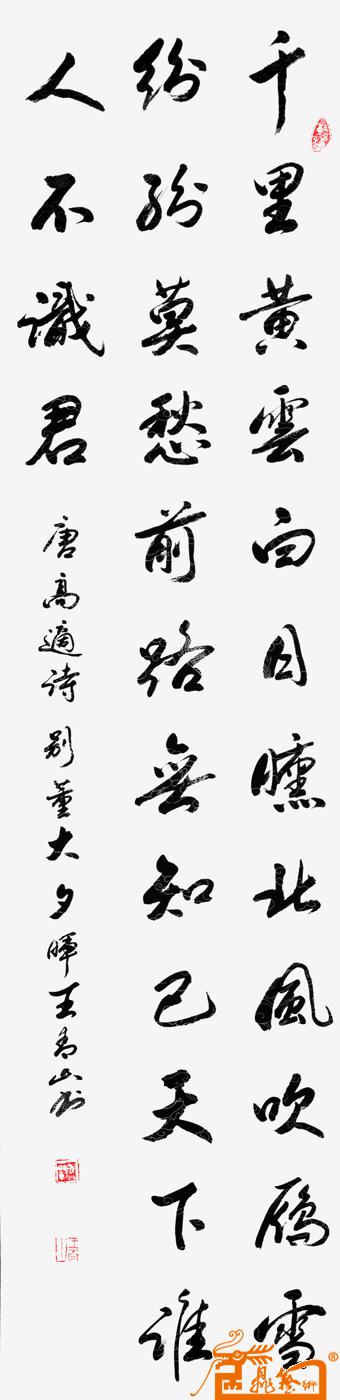 千里黃雲白日曛北風吹鴈雪
紛紛莫愁前路無知己天下誰
人不識君
唐高適詩別董大夕暉王青山